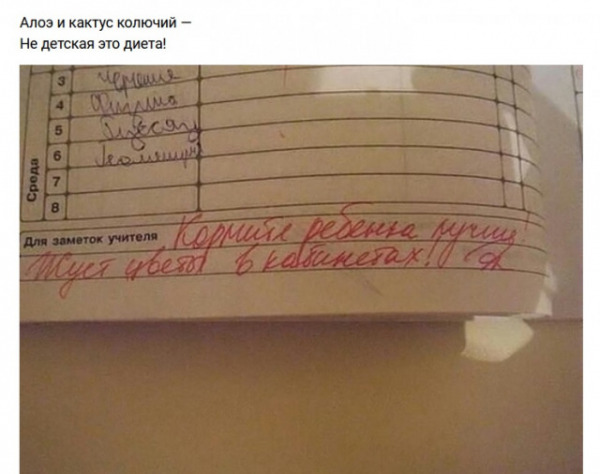 Алоэ и кактус колючий —
Не детская это диета!
3
4 Физика
5 Русский
6
7
8
Среда
Для заметок учителя Кормите ребенка лучше!
Жуёт цветы в кабинетах!